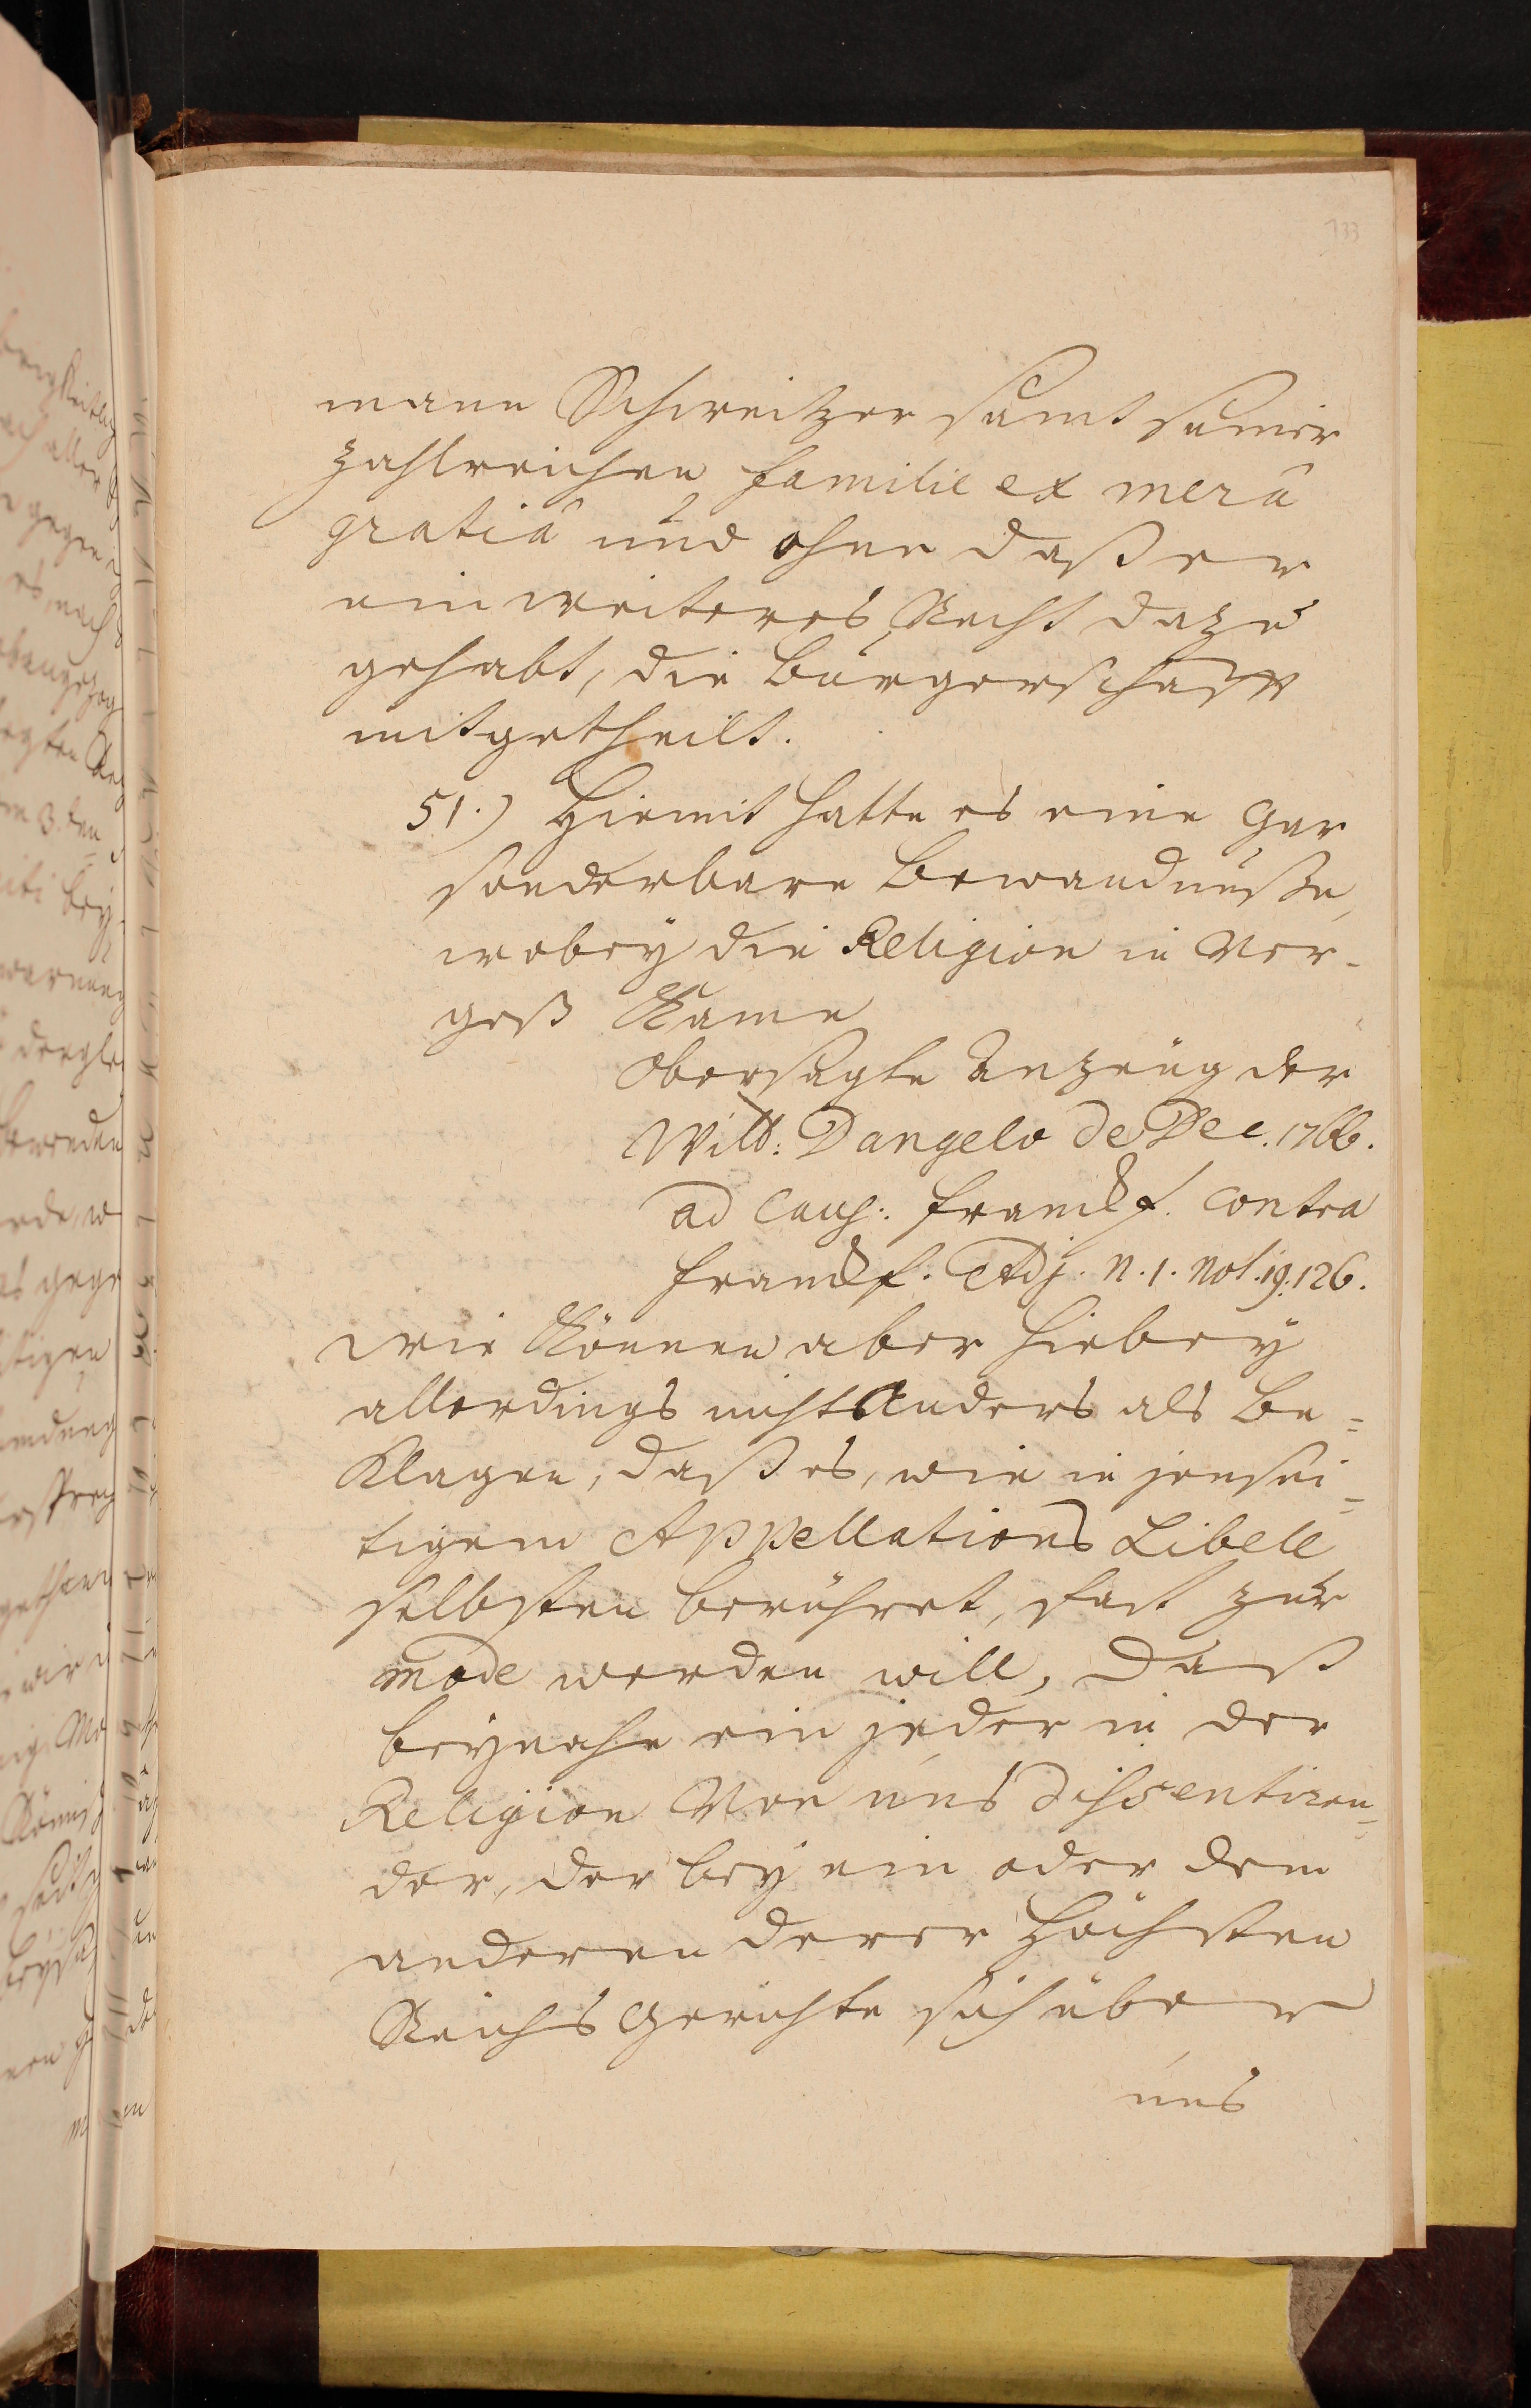 133
mann Schweitzer samt seiner
zahlreichen Familie ex merâ
gratiâ und ohne daß er
ein weiteres Recht dazu
gehabt, die Bürgerschafft
mitgetheilt.
51.) Hiemit hatte es eine gar
sonderbare Bewandnuße,
wobey die Religion in Ver-
geß kame
Obersagte Anzeug der
Witt: Dangelo de Dec. 1766.
ad Caus: Franckf. contra
Franckf. Adj. N. 1. Not. 19. 126.
wie können aber hiebey
allerdings nicht anders als be=
klagen, daß es, wie in jensei=
tigem Appellations Libell
selbsten berühret, fast zur
mode werden will, daß
beynahe ein jeder in der
Religion von uns dissentiren=
der, der bey ein oder dem
anderen derer höchsten
Reichs Gerichte sich über
uns